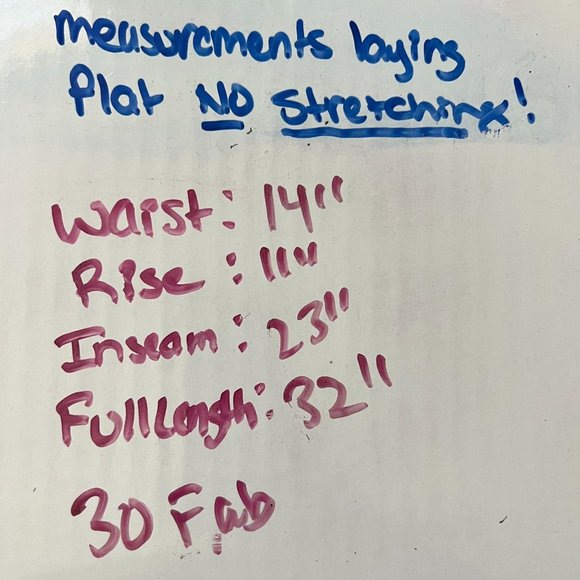 measurements laying
flat NO Stretching!
Waist: 14"
Rise: 11"
Inseam: 23"
Full Length: 32"
30 Fab